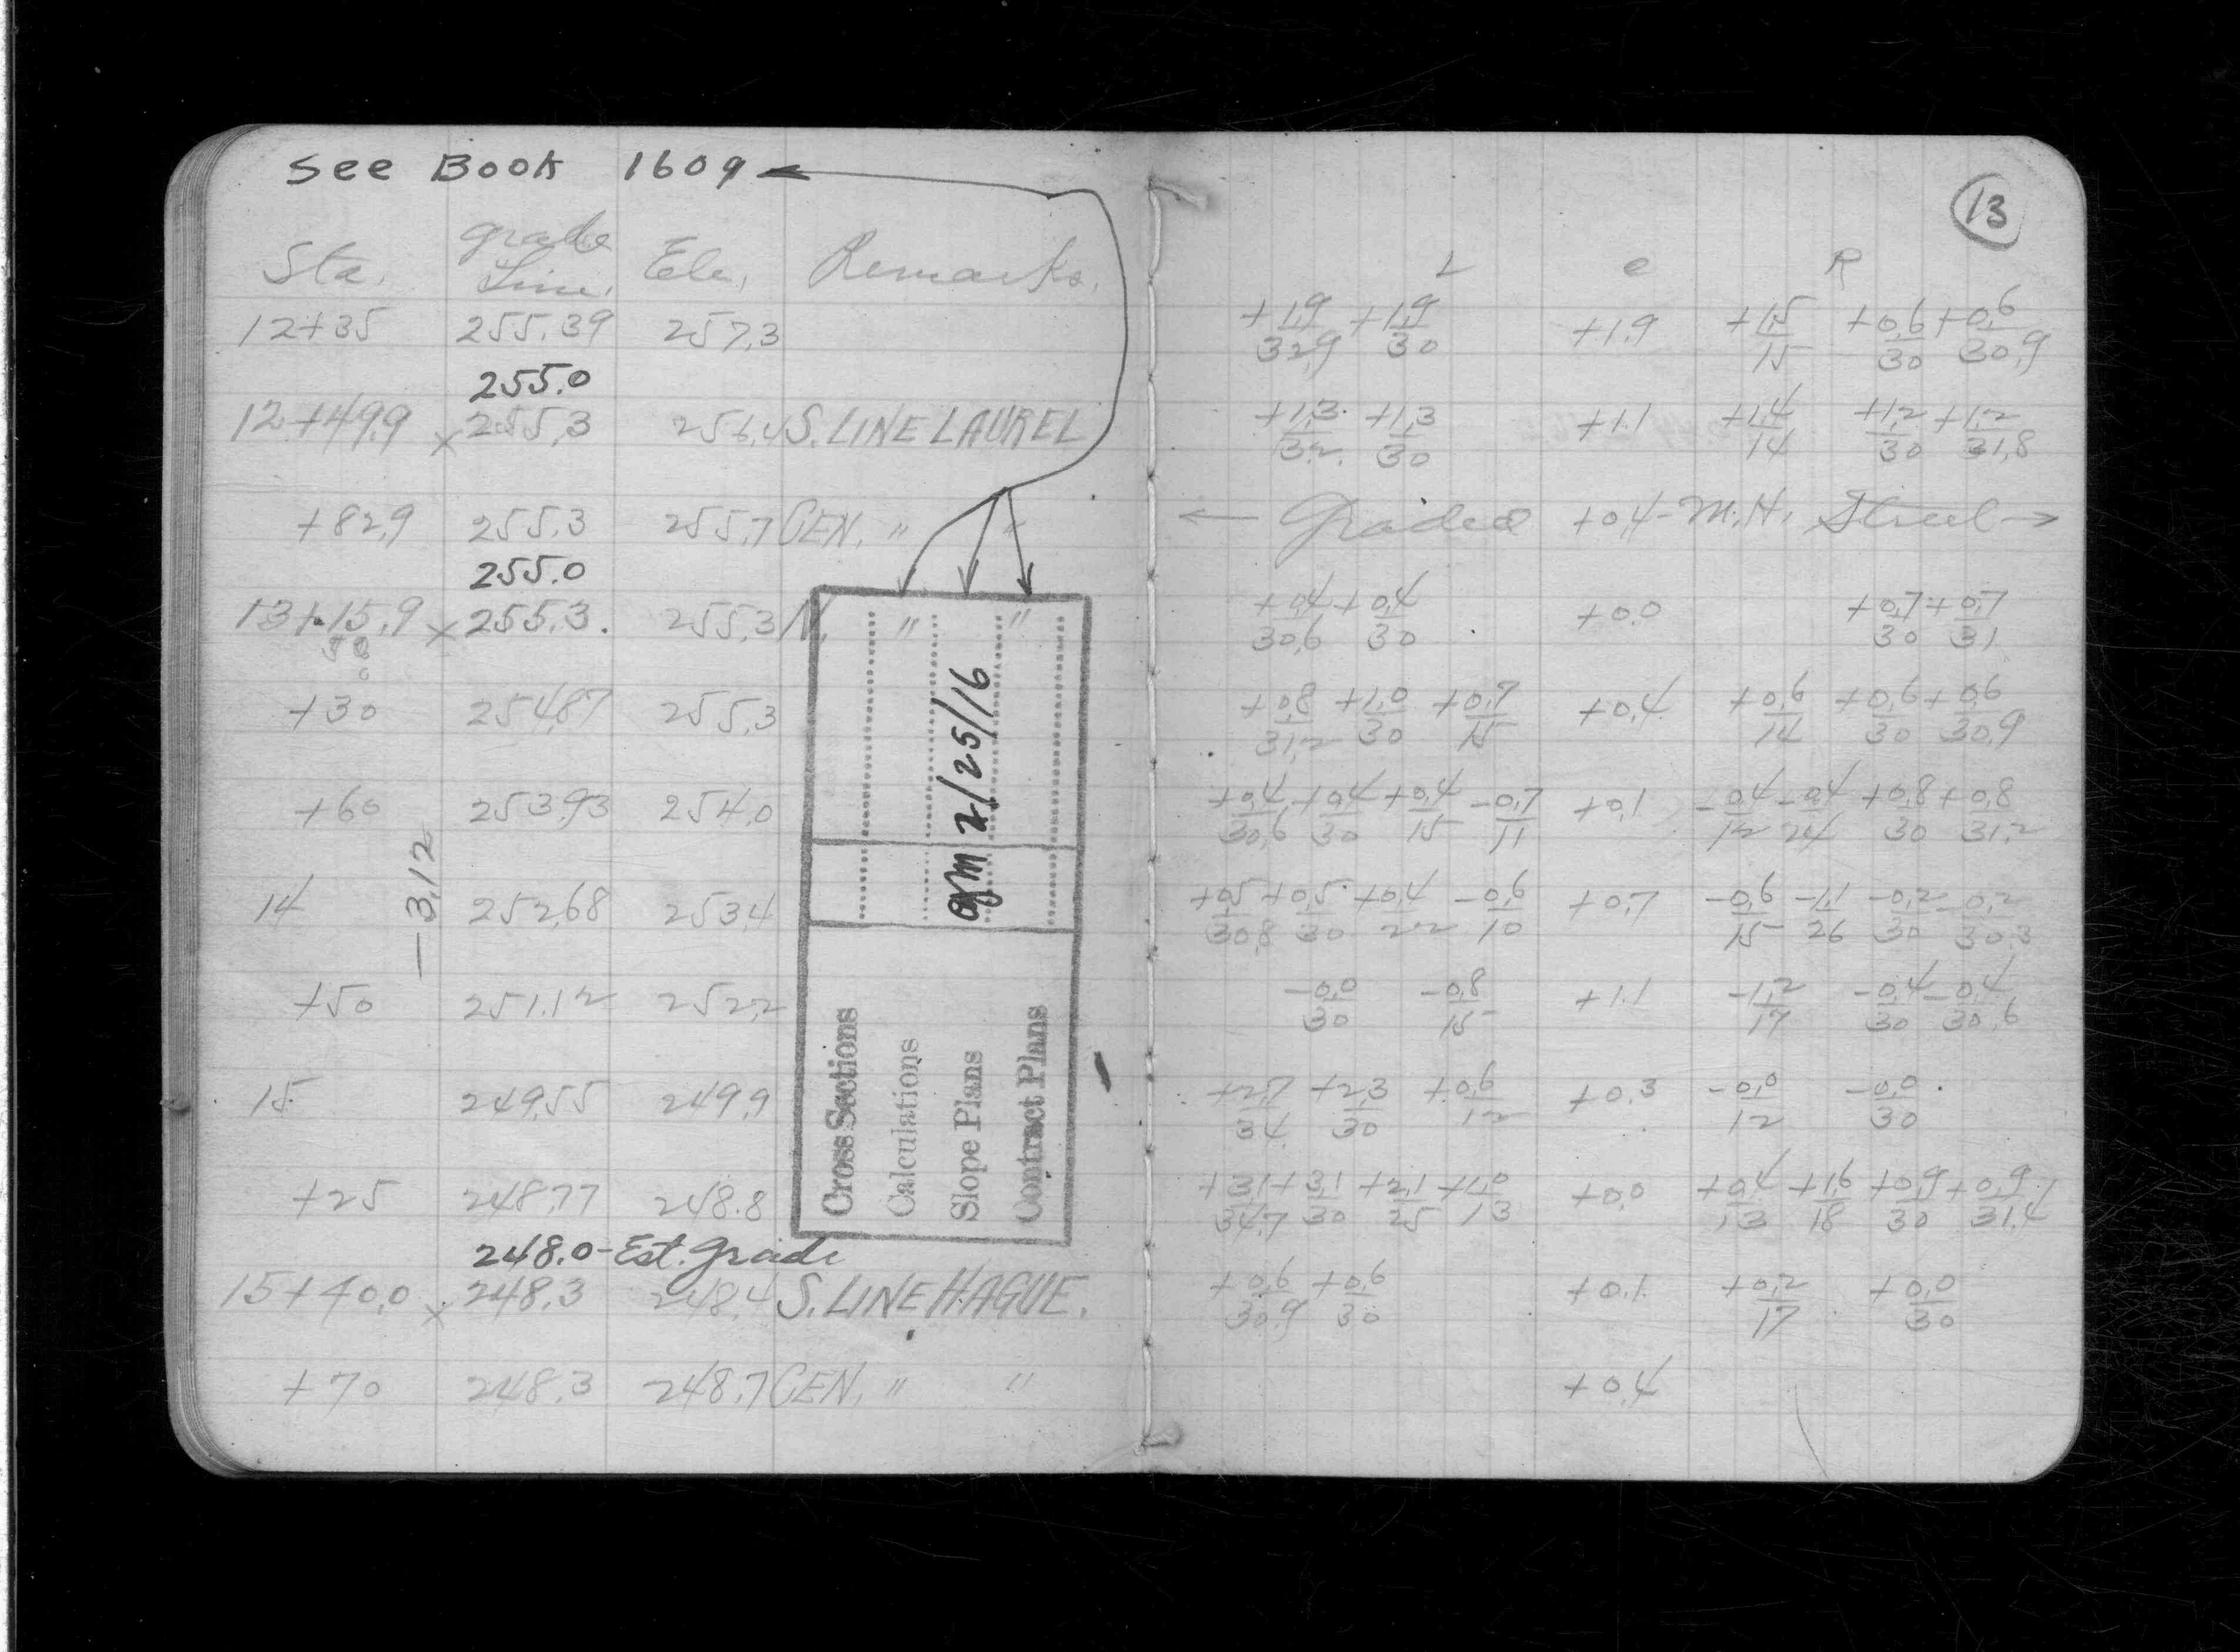 See Book 1609
13
Sta. grade Line. Ele. Remarks. L c R
12+35 255.39 257.3 +1.9/32.9 +1.9/30 +1.9 +1.5/15 +0.6/30 +0.6/30.9
255.0
12+49.9 x 255.3 256.4 S. LINE LAUREL +1.3/32. +1.3/30 +1.1 +1.4/14 +1.2/30 +1.2/31.8
+82.9 255.3 255.7 CEN. " " ← Graded +0.4-M.H. Street →
255.0
13+15.9 x 255.3. 255.3 N. " " +0.4/30.6 +0.4/30 +0.0 +0.7/30 +0.7/31
+30 254.87 255.3 +0.8/31.2 +1.0/30 +0.7/15 +0.4 +0.6/14 +0.6/30 +0.6/30.9
+60 253.93 254.0 +0.4/30.6 +0.4/30 +0.4/15 -0.7/11 +0.1 -0.4/12 -0.4/24 +0.8/30 +0.8/31.2
-3.12
14 252.68 253.4 +0.5/30.8 +0.5/30 +0.4/22 -0.6/10 +0.7 -0.6/15 -1.1/26 -0.2/30 -0.2/30.3
+50 251.12 252.2 -0.0/30 -0.8/15 +1.1 -1.2/17 -0.4/30 -0.4/30.6
15 249.55 249.9 +2.7/34 +2.3/30 +0.6/12 +0.3 -0.0/12 -0.0/30
+25 248.77 248.8 +3.1/34.7 +3.1/30 +2.1/25 +1.0/13 +0.0 +0.4/13 +1.6/18 +0.9/30 +0.9/31.4
248.0-Est. Grade
15+40.0 x 248.3 248.4 S. LINE HAGUE. +0.6/30.9 +0.6/30 +0.1 +0.2/17 +0.0/30
+70 248.3 248.7 CEN. " " +0.4
Cross Sections
Calculations
Slope Plans 2/25/16
Contract Plans